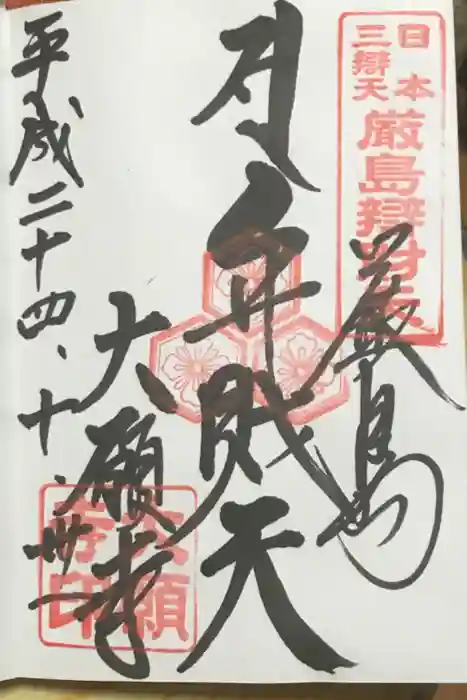 日本
三辯天
厳島辯財天
厳島
弁財天
大願寺
大願
寺印
平成二十四、十、卅一